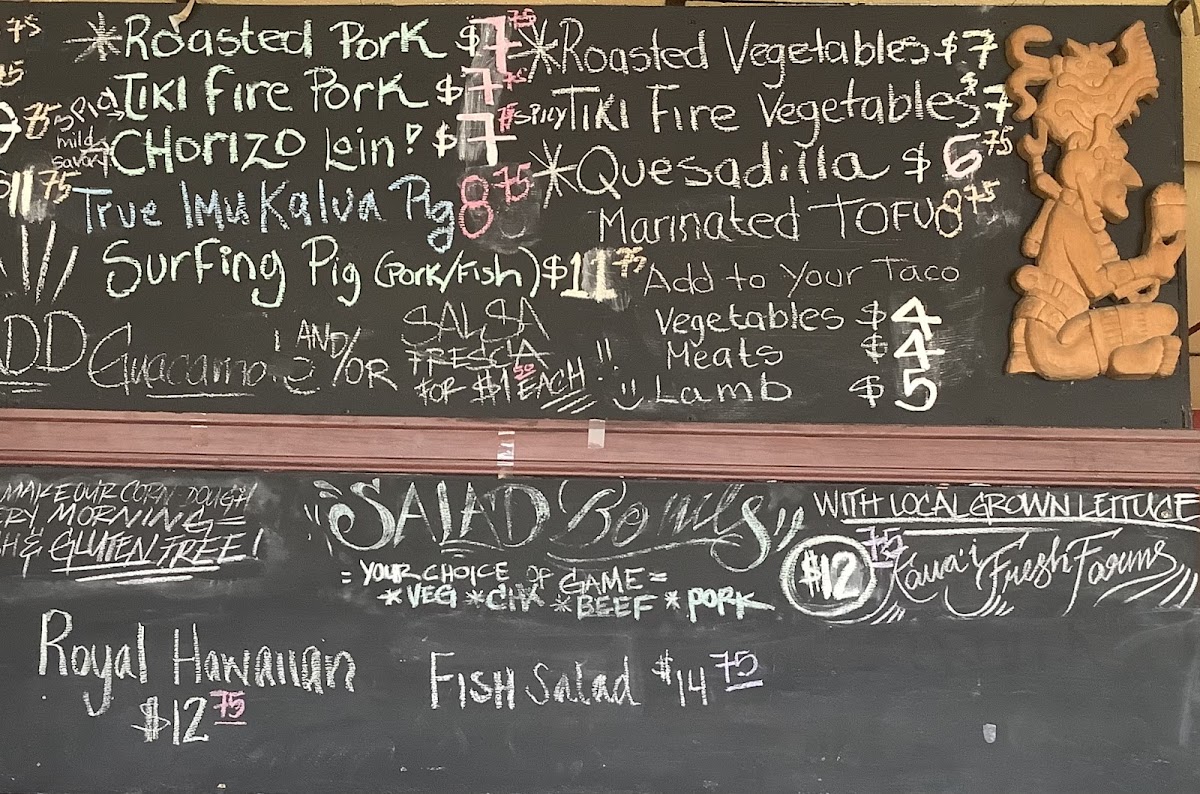 75
*Roasted Pork $7.75
Tiki Fire Pork $7.75
75 Mild
Chorizo Loin! $7.75
$11.75
True Imu Kalua Pig 8.75
Surfing Pig (Pork/Fish) $11.75
ADD Guacamo AND/OR
SALSA
FRESCA
FOR $1.50 EACH!!
*Roasted Vegetables $7
Spicy Tiki Fire Vegetables $7
*Quesadilla $6.75
Marinated TOFU 8.75
Add to Your Taco
Vegetables $4
Meats $4
Lamb $5
MAKE OUR CORN DOUGH
ERY MORNING=
H & GLUTEN FREE!
"SALAD Bowls"
=YOUR CHOICE OF GAME=
*VEG *CHK *BEEF *PORK
WITH LOCAL GROWN LETTUCE
$12.75 Kaua'i Fresh Farms
Royal Hawaiian
$12.75
Fish Salad $14.75